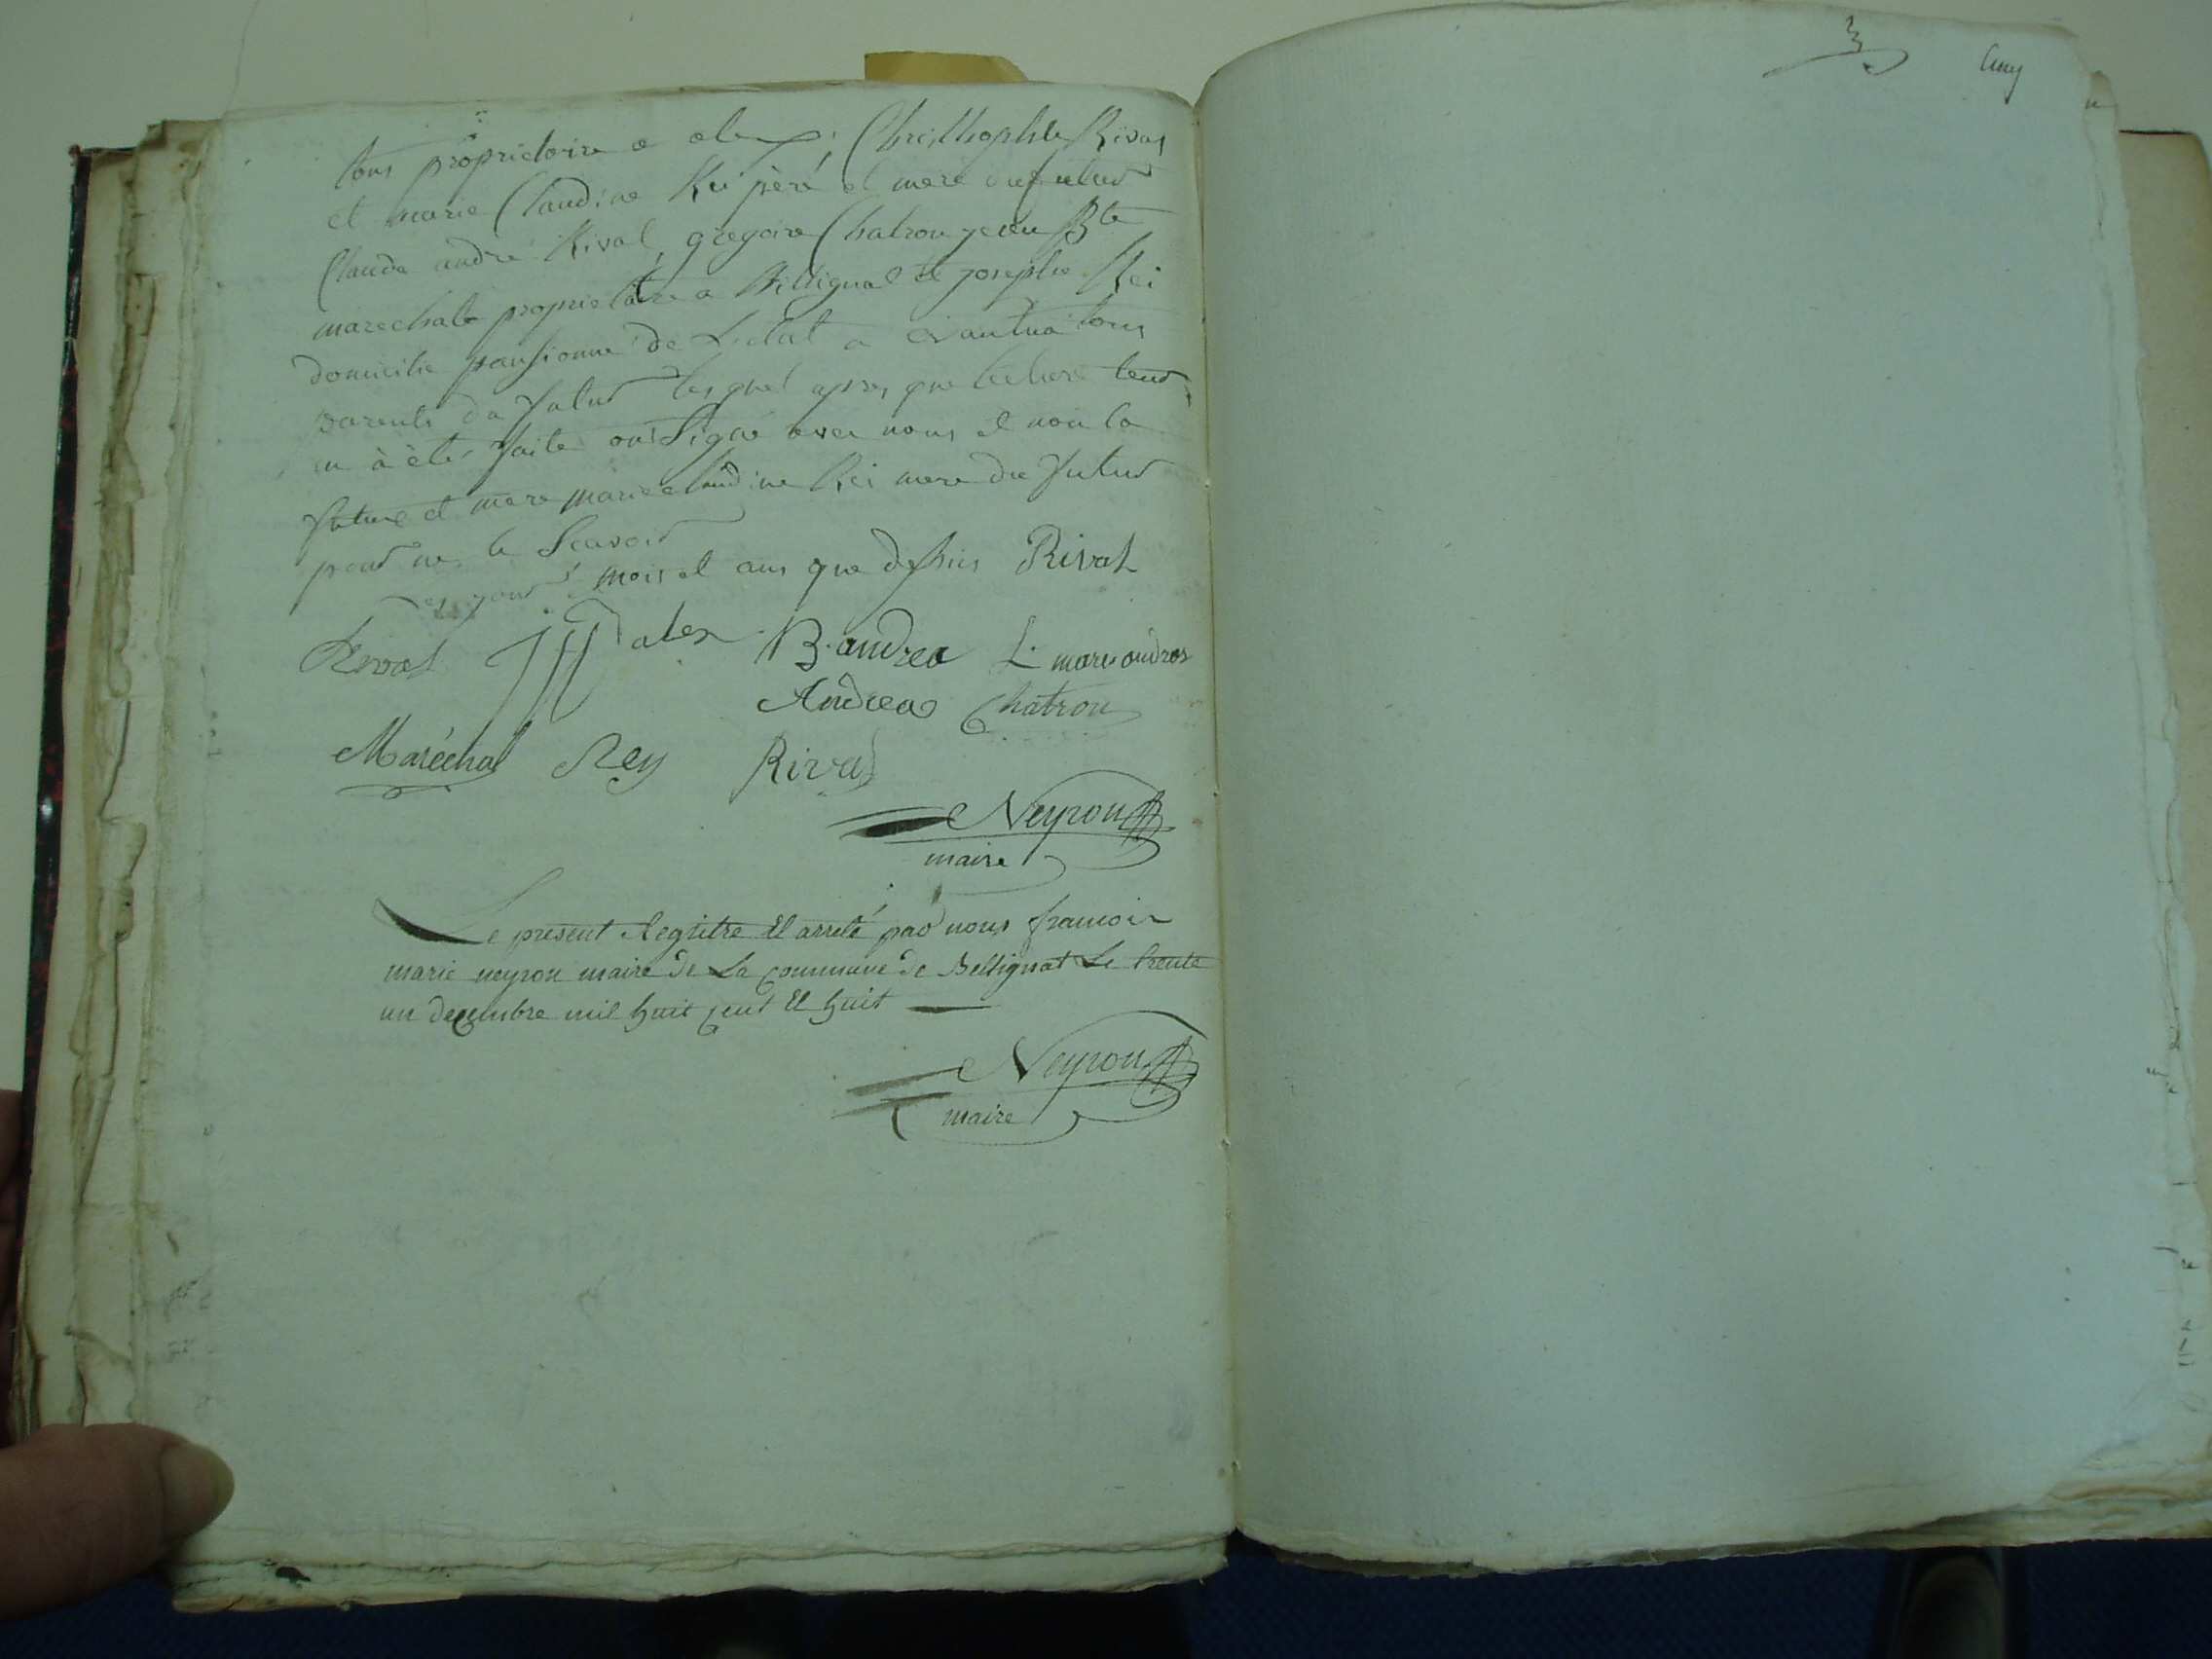 tous proprietaire a alex; Christhophle Rival
et marie Claudine Rei père et mere du futur
Claude andré Rival, gregoire Chatron jean Bte
marechal proprietaire a Bellignat et josephe Rei
domicilie pansionné de L'etat a nantua tous
parents du futur lesquel apres que lecture leur
en à été faite ont Signé avec nous et non la
future et mere marie claudine Rei mere du futur
pour ne le Scavoir
les jour mois et ans que dessus Rival
Rival alex B. andrea L. marie andrea
Andrea Chatron
Maréchal Rey Rival
Neyron
maire
Le present Registre Et arreté par nous francois
marie neyron maire de La commune de Bellignat Le trente
un decembre mil huit cent Et huit
Neyron
maire